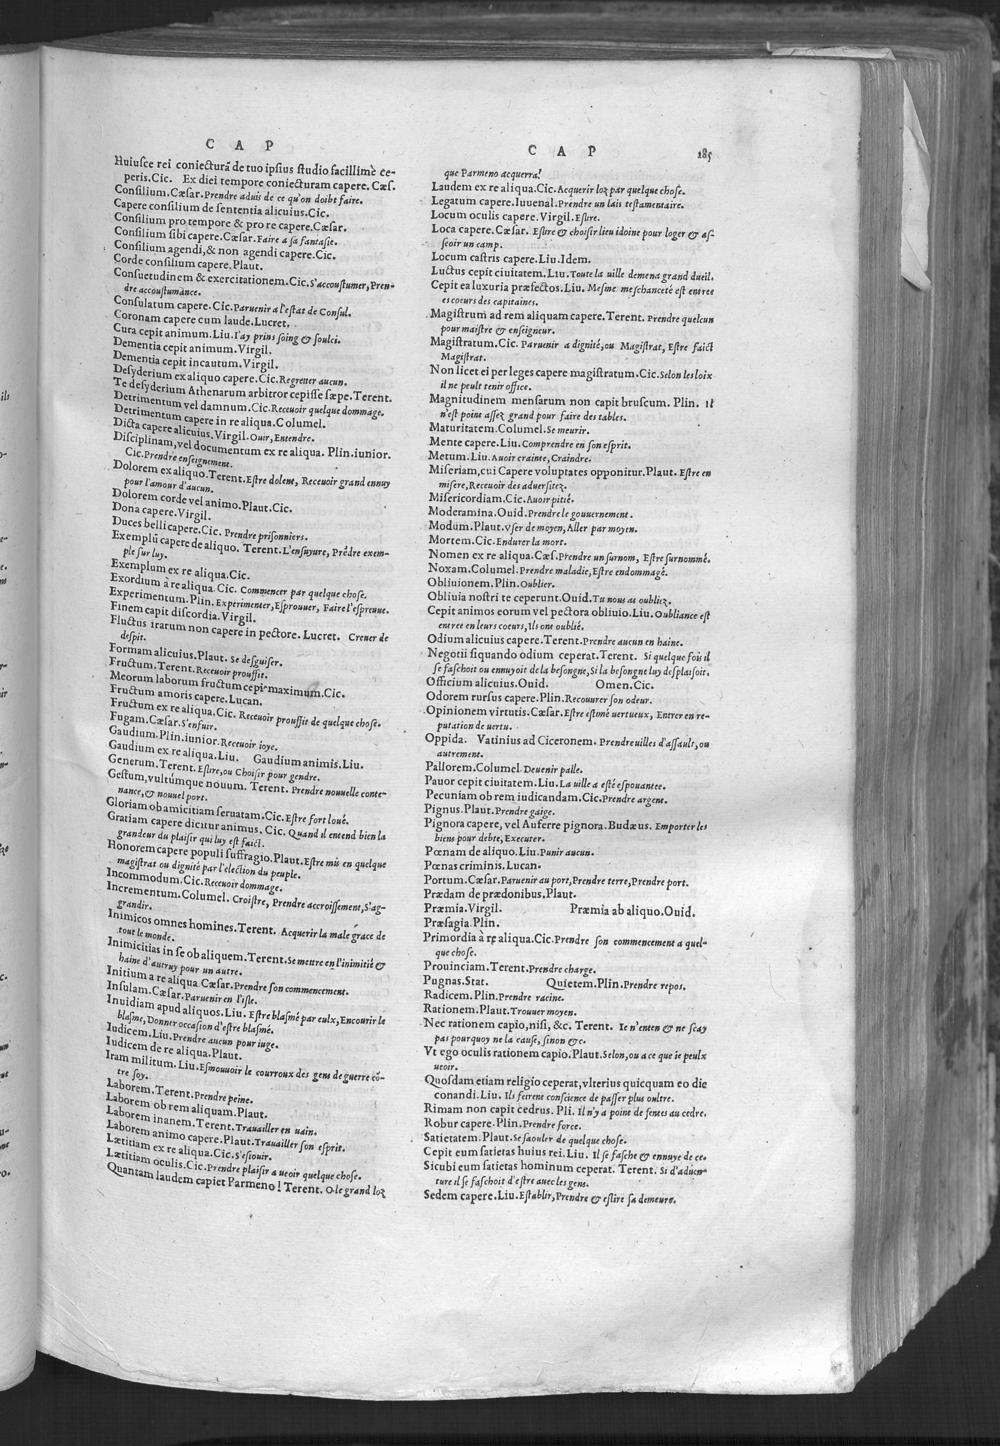 C A P
Huiusce rei coniecturã de tuo ipsius studio facillimè ce-
peris.Cic. Ex diei tempore coniecturam capere. Cæs.
Consilium.Cæsar.Prendre aduis de ce qu'on doibt faire.
Capere consilium de sententia alicuius.Cic.
Consilium pro tempore & pro re capere.Cæsar.
Consilium sibi capere.Cæsar.Faire a sa fantasie.
Consilium agendi,& non agendi capere.Cic.
Corde consilium capere.Plaut.
Consuetudinem & exercitationem.Cic.S'accoustumer,Pren-
dre accoustumãce.
Consulatum capere.Cic.Paruenir a l'estat de Consul.
Coronam capere cum laude.Lucret.
Cura cepit animum.Liu.I'ay prins soing & soulci.
Dementia cepit animum.Virgil.
Dementia cepit incautum.Virgil.
Desyderium ex aliquo capere.Cic.Regretter aucun.
Te desyderium Athenarum arbitror cepisse sæpe.Terent.
Detrimentum vel damnum.Cic.Receuoir quelque dommage.
Detrimentum capere in re aliqua.Columel.
Dicta capere alicuius.Virgil.Ouir,Entendre.
Disciplinam,vel documentum ex re aliqua. Plin.iunior.
Cic.Prendre enseignement.
Dolorem ex aliquo.Terent.Estre dolent, Receuoir grand ennuy
pour l'amour d'aucun.
Dolorem corde vel animo.Plaut.Cic.
Dona capere.Virgil.
Duces belli capere.Cic.Prendre prisonniers.
Exemplũ capere de aliquo. Terent.L'ensuyure, Prẽdre exem-
ple sur luy.
Exemplum ex re aliqua.Cic.
Exordium à re aliqua.Cic. Commencer par quelque chose.
Experimentum.Plin.Experimenter,Esprouuer, Faire l'espreuue.
Finem capit discordia.Virgil.
Fluctus irarum non capere in pectore. Lucret. Creuer de
despit.
Formam alicuius.Plaut. Se desguiser.
Fructum.Terent.Receuoir prouffit.
Meorum laborum fructum cepi maximum.Cic.
Fructum amoris capere.Lucan.
Fructum ex re aliqua.Cic. Receuoir prouffit de quelque chose.
Fugam.Cæsar.S'enfuir.
Gaudium.Plin.iunior.Receuoir ioye.
Gaudium ex re aliqua.Liu. Gaudium animis.Liu.
Generum.Terent.Eslire,ou Choisir pour gendre.
Gestum,vultúmque nouum. Terent. Prendre nouuelle conte-
nance,& nouuel port.
Gloriam ob amicitiam seruatam.Cic.Estre fort loué.
Gratiam capere dicitur animus. Cic. Quand il entend bien la
grandeur du plaisir qui luy est faict.
Honorem capere populi suffragio.Plaut.Estre mis en quelque
magistrat ou dignité par l'election du peuple.
Incommodum.Cic.Receuoir dommage.
Incrementum.Columel. Croistre, Prendre accroissement,S'ag-
grandir.
Inimicos omnes homines.Terent. Acquerir la male grace de
tout le monde.
Inimicitias in se ob aliquem.Terent.Se mettre en l'inimitié &
haine d'autruy pour un autre.
Initium a re aliqua.Cæsar.Prendre son commencement.
Insulam.Cæsar.Paruenir en l'isle.
Inuidiam apud aliquos.Liu. Estre blasmé par eulx,Encourir le
blasme,Donner occasion d'estre blasmé.
Iudicem.Liu.Prendre aucun pour iuge.
Iudicem de re aliqua.Plaut.
Iram militum.Liu.Esmouuoir le courroux des gens de guerre cõ-
tre soy.
Laborem.Terent.Prendre peine.
Laborem ob rem aliquam.Plaut.
Laborem inanem.Terent.Trauailler en uain.
Laborem animo capere.Plaut.Trauailler son esprit.
Lætitiam ex re aliqua.Cic.S'esiouir.
Lætitiam oculis.Cic.Prendre plaisir a ueoir quelque chose.
Quantam laudem capiet Parmeno! Terent. O le grand loz
C A P 185
que Parmeno acquerra!
Laudem ex re aliqua.Cic.Acquerir loz par quelque chose.
Legatum capere.Iuuenal.Prendre un lais testamentaire.
Locum oculis capere.Virgil.Eslire.
Loca capere.Cæsar. Eslire & choisir lieu idoine pour loger & as-
seoir un camp.
Locum castris capere.Liu.Idem.
Luctus cepit ciuitatem.Liu.Toute la uille demena grand dueil.
Cepit ea luxuria præfectos.Liu. Mesme meschanceté est entree
es coeurs des capitaines.
Magistrum ad rem aliquam capere.Terent. Prendre quelcun
pour maistre & enseigneur.
Magistratum.Cic. Paruenir a dignité,ou Magistrat, Estre faict
Magistrat.
Non licet ei per leges capere magistratum.Cic.Selon les loix
il ne peult tenir office.
Magnitudinem mensarum non capit bruscum. Plin. Il
n'est point assez grand pour faire des tables.
Maturitatem.Columel.Se meurir.
Mente capere.Liu.Comprendre en son esprit.
Metum.Liu.Auoir crainte,Craindre.
Miseriam,cui Capere voluptates opponitur.Plaut.Estre en
misere,Receuoir des aduersitez.
Misericordiam.Cic.Auoir pitié.
Moderamina.Ouid.Prendre le gouuernement.
Modum.Plaut.Vser de moyen,Aller par moyen.
Mortem.Cic.Endurer la mort.
Nomen ex re aliqua.Cæs.Prendre un surnom, Estre surnommé.
Noxam.Columel.Prendre maladie,Estre endommagé.
Obliuionem.Plin.Oublier.
Obliuia nostri te ceperunt.Ouid.Tu nous as oubliez.
Cepit animos eorum vel pectora obliuio.Liu.Oubliance est
entree en leurs coeurs,Ils ont oublié.
Odium alicuius capere.Terent.Prendre aucun en haine.
Negotii siquando odium ceperat.Terent. Si quelque fois il
se faschoit ou ennuyoit de la besongne,Si la besongne luy desplaisoit.
Officium alicuius.Ouid. Omen.Cic.
Odorem rursus capere.Plin.Recouurer son odeur.
Opinionem virtutis.Cæsar.Estre estimé uertueux, Entrer en re-
putation de uertu.
Oppida. Vatinius ad Ciceronem. Prendre uilles d'assault,ou
autrement.
Pallorem.Columel.Deuenir palle.
Pauor cepit ciuitatem.Liu.La uille a esté espouantee.
Pecuniam ob rem iudicandam.Cic.Prendre argent.
Pignus.Plaut.Prendre gaige.
Pignora capere, vel Auferre pignora.Budæus. Emporter les
biens pour debte, Executer.
Pœnam de aliquo.Liu.Punir aucun.
Pœnas criminis.Lucan.
Portum.Cæsar.Paruenir au port,Prendre terre,Prendre port.
Prædam de prædonibus.Plaut.
Præmia.Virgil. Præmia ab aliquo.Ouid.
Præsagia.Plin.
Primordia à re aliqua.Cic.Prendre son commencement a quel-
que chose.
Prouinciam.Terent.Prendre charge.
Pugnas.Stat. Quietem.Plin.Prendre repos.
Radicem.Plin.Prendre racine.
Rationem.Plaut.Trouuer moyen.
Nec rationem capio,nisi, &c. Terent. Ie n'enten & ne scay
pas pourquoy ne la cause, sinon &c.
Vt ego oculis rationem capio.Plaut.Selon,ou a ce que ie peulx
ueoir.
Quosdam etiam religio ceperat,vlterius quicquam eo die
conandi.Liu. Ils feirent conscience de passer plus oultre.
Rimam non capit cedrus. Pli. Il n'y a poine de fentes au cedre.
Robur capere.Plin.Prendre force.
Satietatem.Plaut.Se saouler de quelque chose.
Cepit eum satietas huius rei.Liu. Il se fasche & ennuye de ce.
Sicubi eum satietas hominum ceperat. Terent. Si d'aduen-
ture il se faschoit d'estre auec les gens.
Sedem capere.Liu.Establir,Prendre & eslire sa demeure.